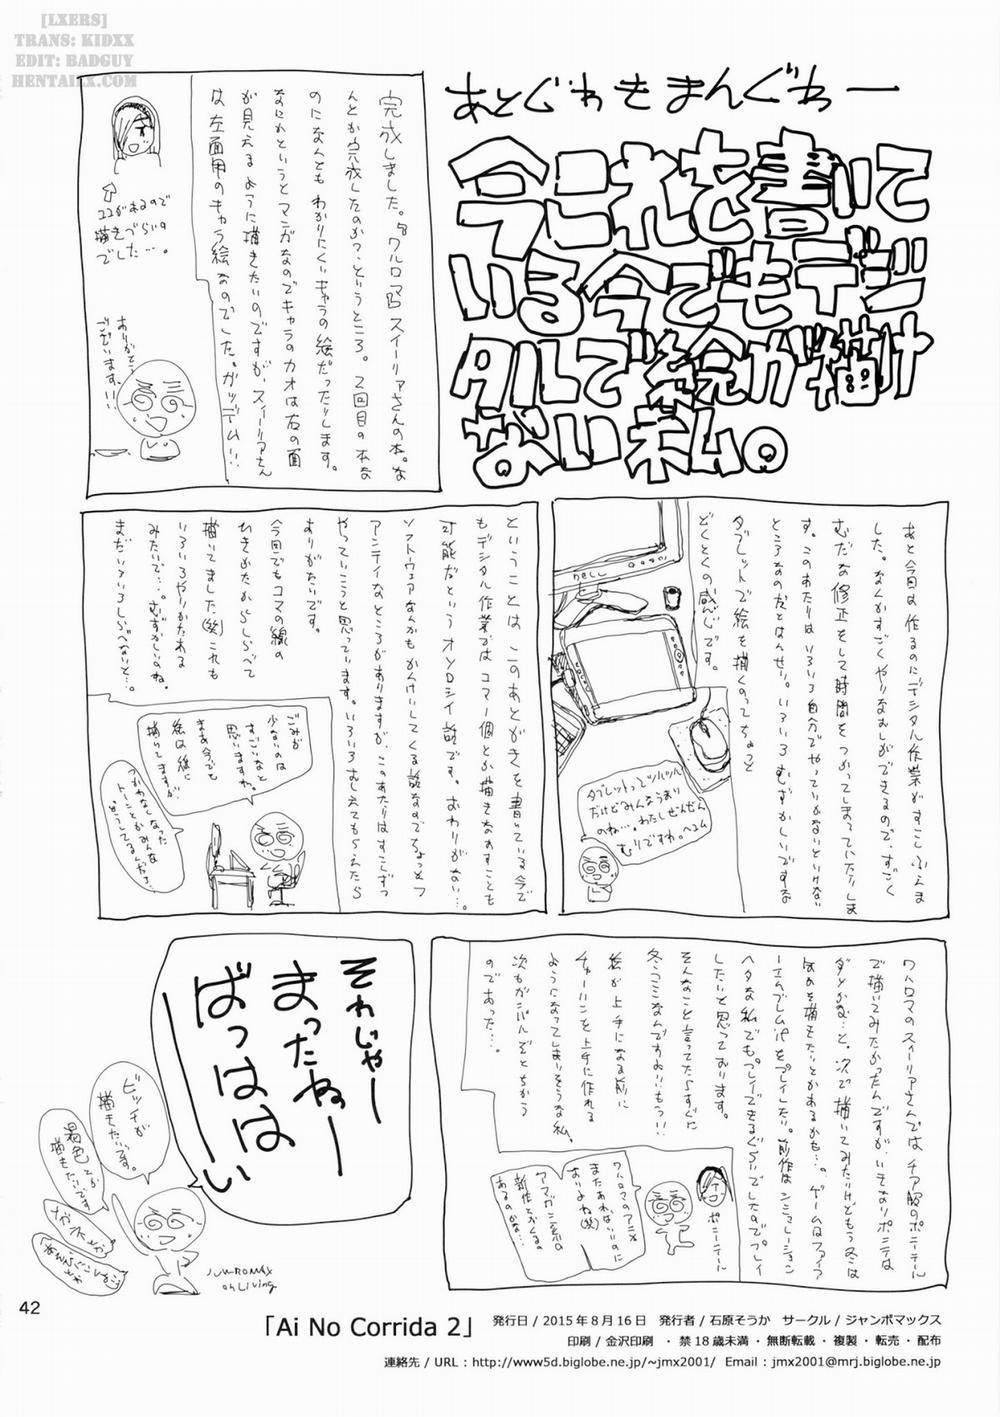 [LXERS]
TRANS: KIDXX
EDIT: BADGUY
HENTAIXX.COM
あとぐわきまんぐわー
今これを書いて
いる今でもデジ
タルで絵が描け
ない私。
完成しました。『ワルロマ』スイーリアさんの本。な
んとか完成したのか?というところ。2回目の本な
のになんともわかりにくいキャラの絵だったりします。
なにかというとマンガなのでキャラのカオは右の面
が見えるように描きたいのですが、スィーリアさん
は左面用のキャラ絵なのでした。ガッデム!!
ココがあるので
描きづらいの
でした…。
ありがとう
ございます!!
あと今回は作るのにデジタル作業がすこしふえま
した。なんかすごくやりなおしができるので、すごく
むだな修正をして時間をつかってしまっていたりしま
す。このあたりはいろいろ自分でやっていかないといけない
ところなのだとはんせい。いろいろむずかしいですな
タブレットで絵を描くのってちょっと
どくとくの感じです。
DELL
タブレットってツルツル
だけどみんなうまい
のね…。わたしぜんぜん
むりですわ。ヘコム
ということは、このあとがきを書いている今で
もデジタル作業ではコマ一個とか描きなおすことも
可能だというオソロシイ話です。おわりがない…。
ソフトウェアなんかもかんけいしてくる話なのでちょっとフ
アンティなところがありますが、このあたりはすこしずつ
やっていこうと思っています。いろいろおしえてもらえたら
ありがたいです。
今回でもコマの線の
ひきかたからしらべて
描いてました(笑)これも
いろいろやりかたある
みたいで…。むずかしいのね。
まだいろいろしらべないと…。
ごみが
少ないのは
すごいなと
思いますわ。
まあ今でも
絵は紙に
描いてますが
つかわなくなった
トーンとかみんな
どうしてるんだろ…
ワルロマのスィーリアさんではチア服のポニーテール
で描いてみたかったんですが、いきなりポニテは
ダメかな…と。次で描いてみたいけどもう冬は
べつのを描きたいとかあるかも…。ゲームはファイア
ーエムブレムifをプレイしたい。前作はシミュレーション
ヘタな私でもプレイできるぐらいでしたのでプレイ
したいと思っております。
そんなこと言ってたらすぐに
冬コミなんですよ!!もうっ!!
絵が上手になる前に
チャーハンを上手に作れる
ようになってしまいそうな私。
次もがんばるぞとちかう
のであった…。
ポニーテール
ワルロマのアニメ
またあれないのに
おりよね(笑)
アマガミ系の
新作とかくるの
あるのかな…
それじゃー
まったねー
ばっはは
ーい
ビッチが
描きたいです。
褐色とか
描きたいです
メガネとか
JUMBOMAX
oh Living
42
「Ai No Corrida 2」
発行日 / 2015年8月16日　発行者 / 石原そうか　サークル / ジャンボマックス
印刷 / 金沢印刷　・禁18歳未満・無断転載・複製・転売・配布
連絡先 / URL : http://www5d.biglobe.ne.jp/~jmx2001/　Email : jmx2001@mrj.biglobe.ne.jp